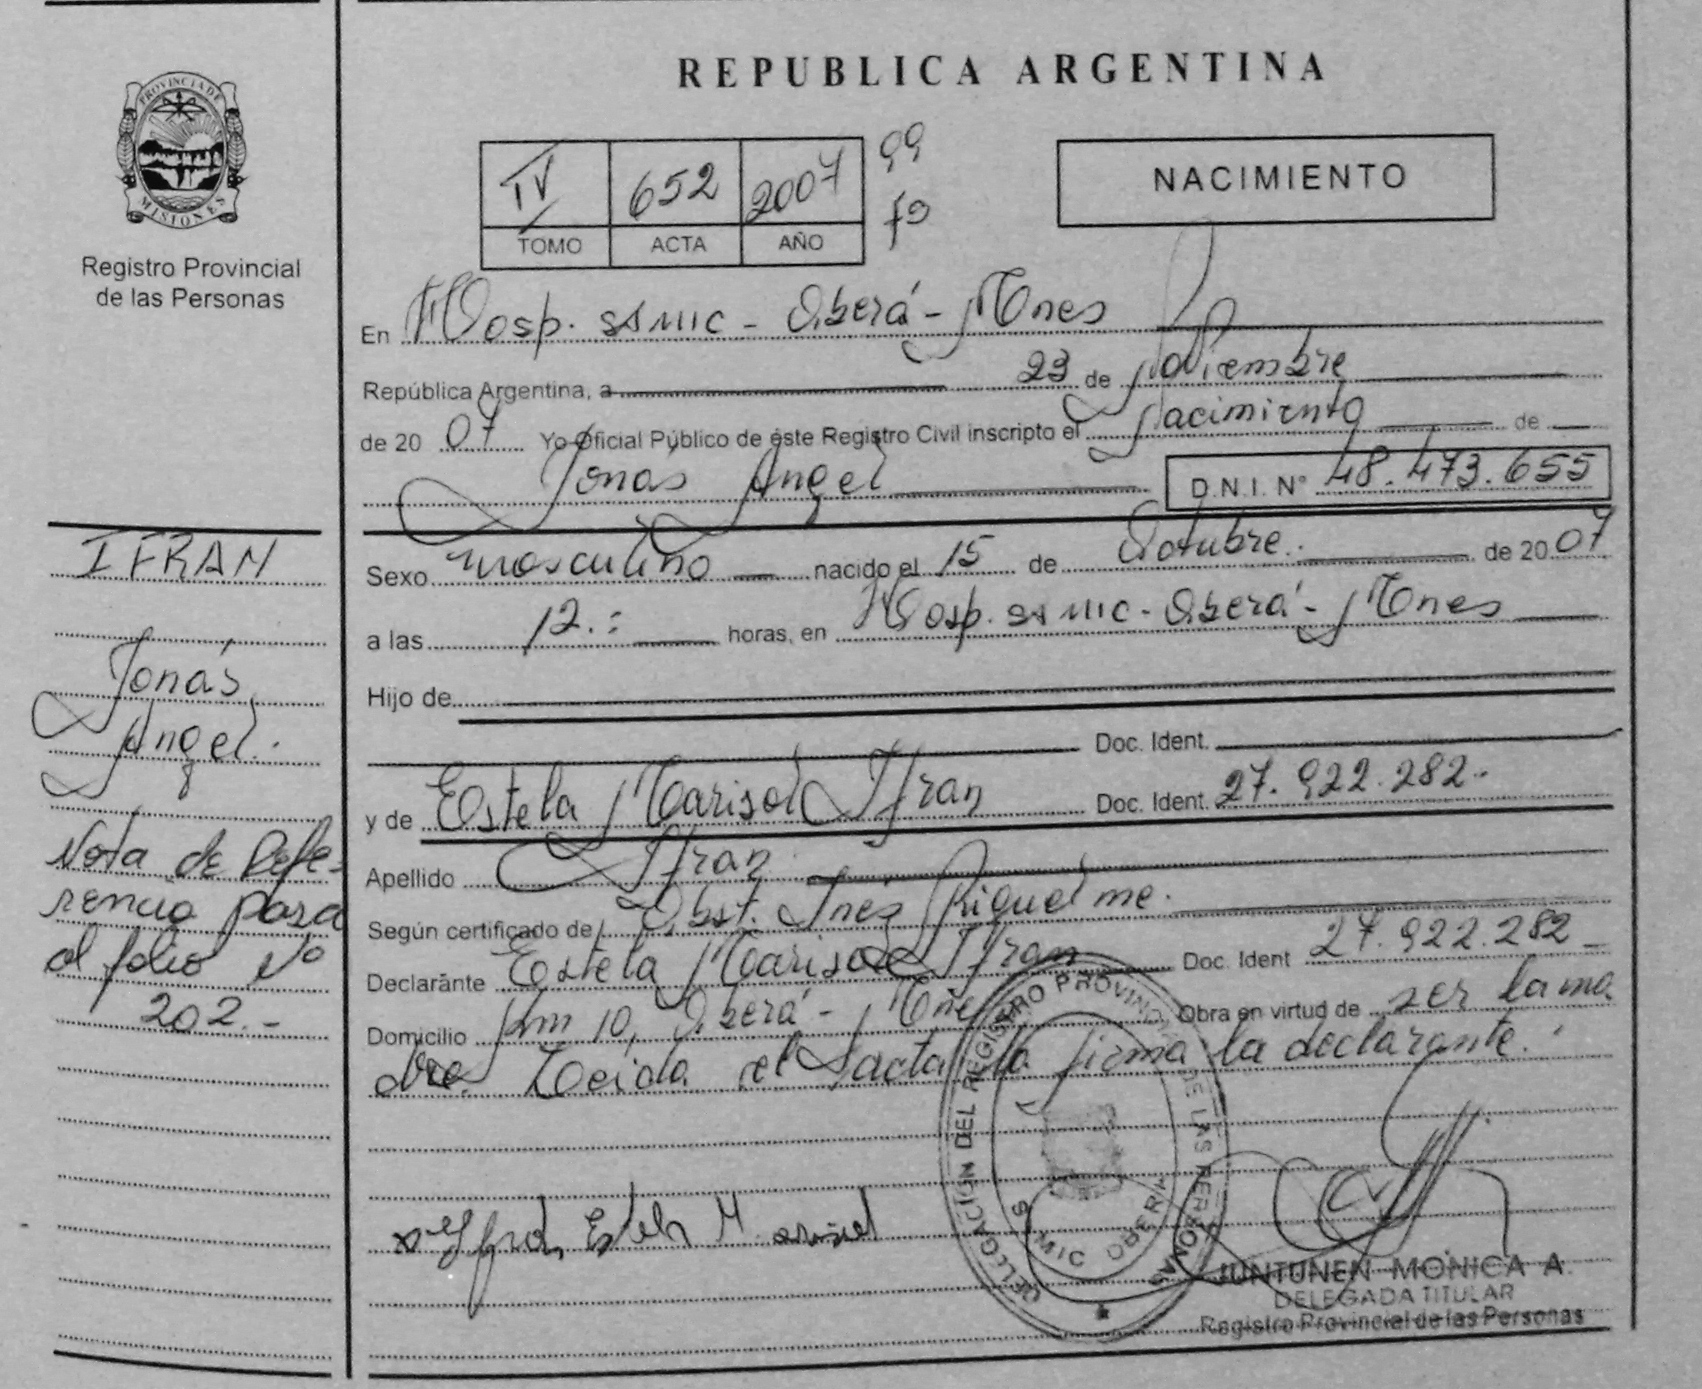 PROVINCIA DE
MISIONES
Registro Provincial
de las Personas
IFRAN
Jonás
Angel.
Nota de Refe-
rencia pasa
al folio Nº
202.-
REPUBLICA ARGENTINA
IV 652 2007 99
TOMO ACTA AÑO fº
NACIMIENTO
En Hosp. SAMIC - Oberá - Mnes
República Argentina, a 23 de Noviembre
de 20 07 Yo Oficial Público de éste Registro Civil inscripto el Nacimiento de
Jonás Angel D.N.I. Nº 48.473.655
Sexo masculino nacido el 15 de Octubre. de 20 07
a las 12.: horas, en Hosp. SAMIC - Oberá - Mnes
Hijo de
Doc. Ident.
y de Estela Marisol Ifran Doc. Ident. 27.922.282.-
Apellido Ifran
Según certificado de Obst. Inés Riquelme.
Declarante Estela Marisol Ifran Doc. Ident 27.922.282
Domicilio Km 10, Oberá - Mnes Obra en virtud de ser la ma
dre Leída el acta la firma la declarante.
Ifran Estela Marisol
DELEGACION DEL REGISTRO PROVINCIAL DE LAS PERSONAS
SAMIC OBERA
JUNTUNEN MONICA A.
DELEGADA TITULAR
Registro Provincial de las Personas